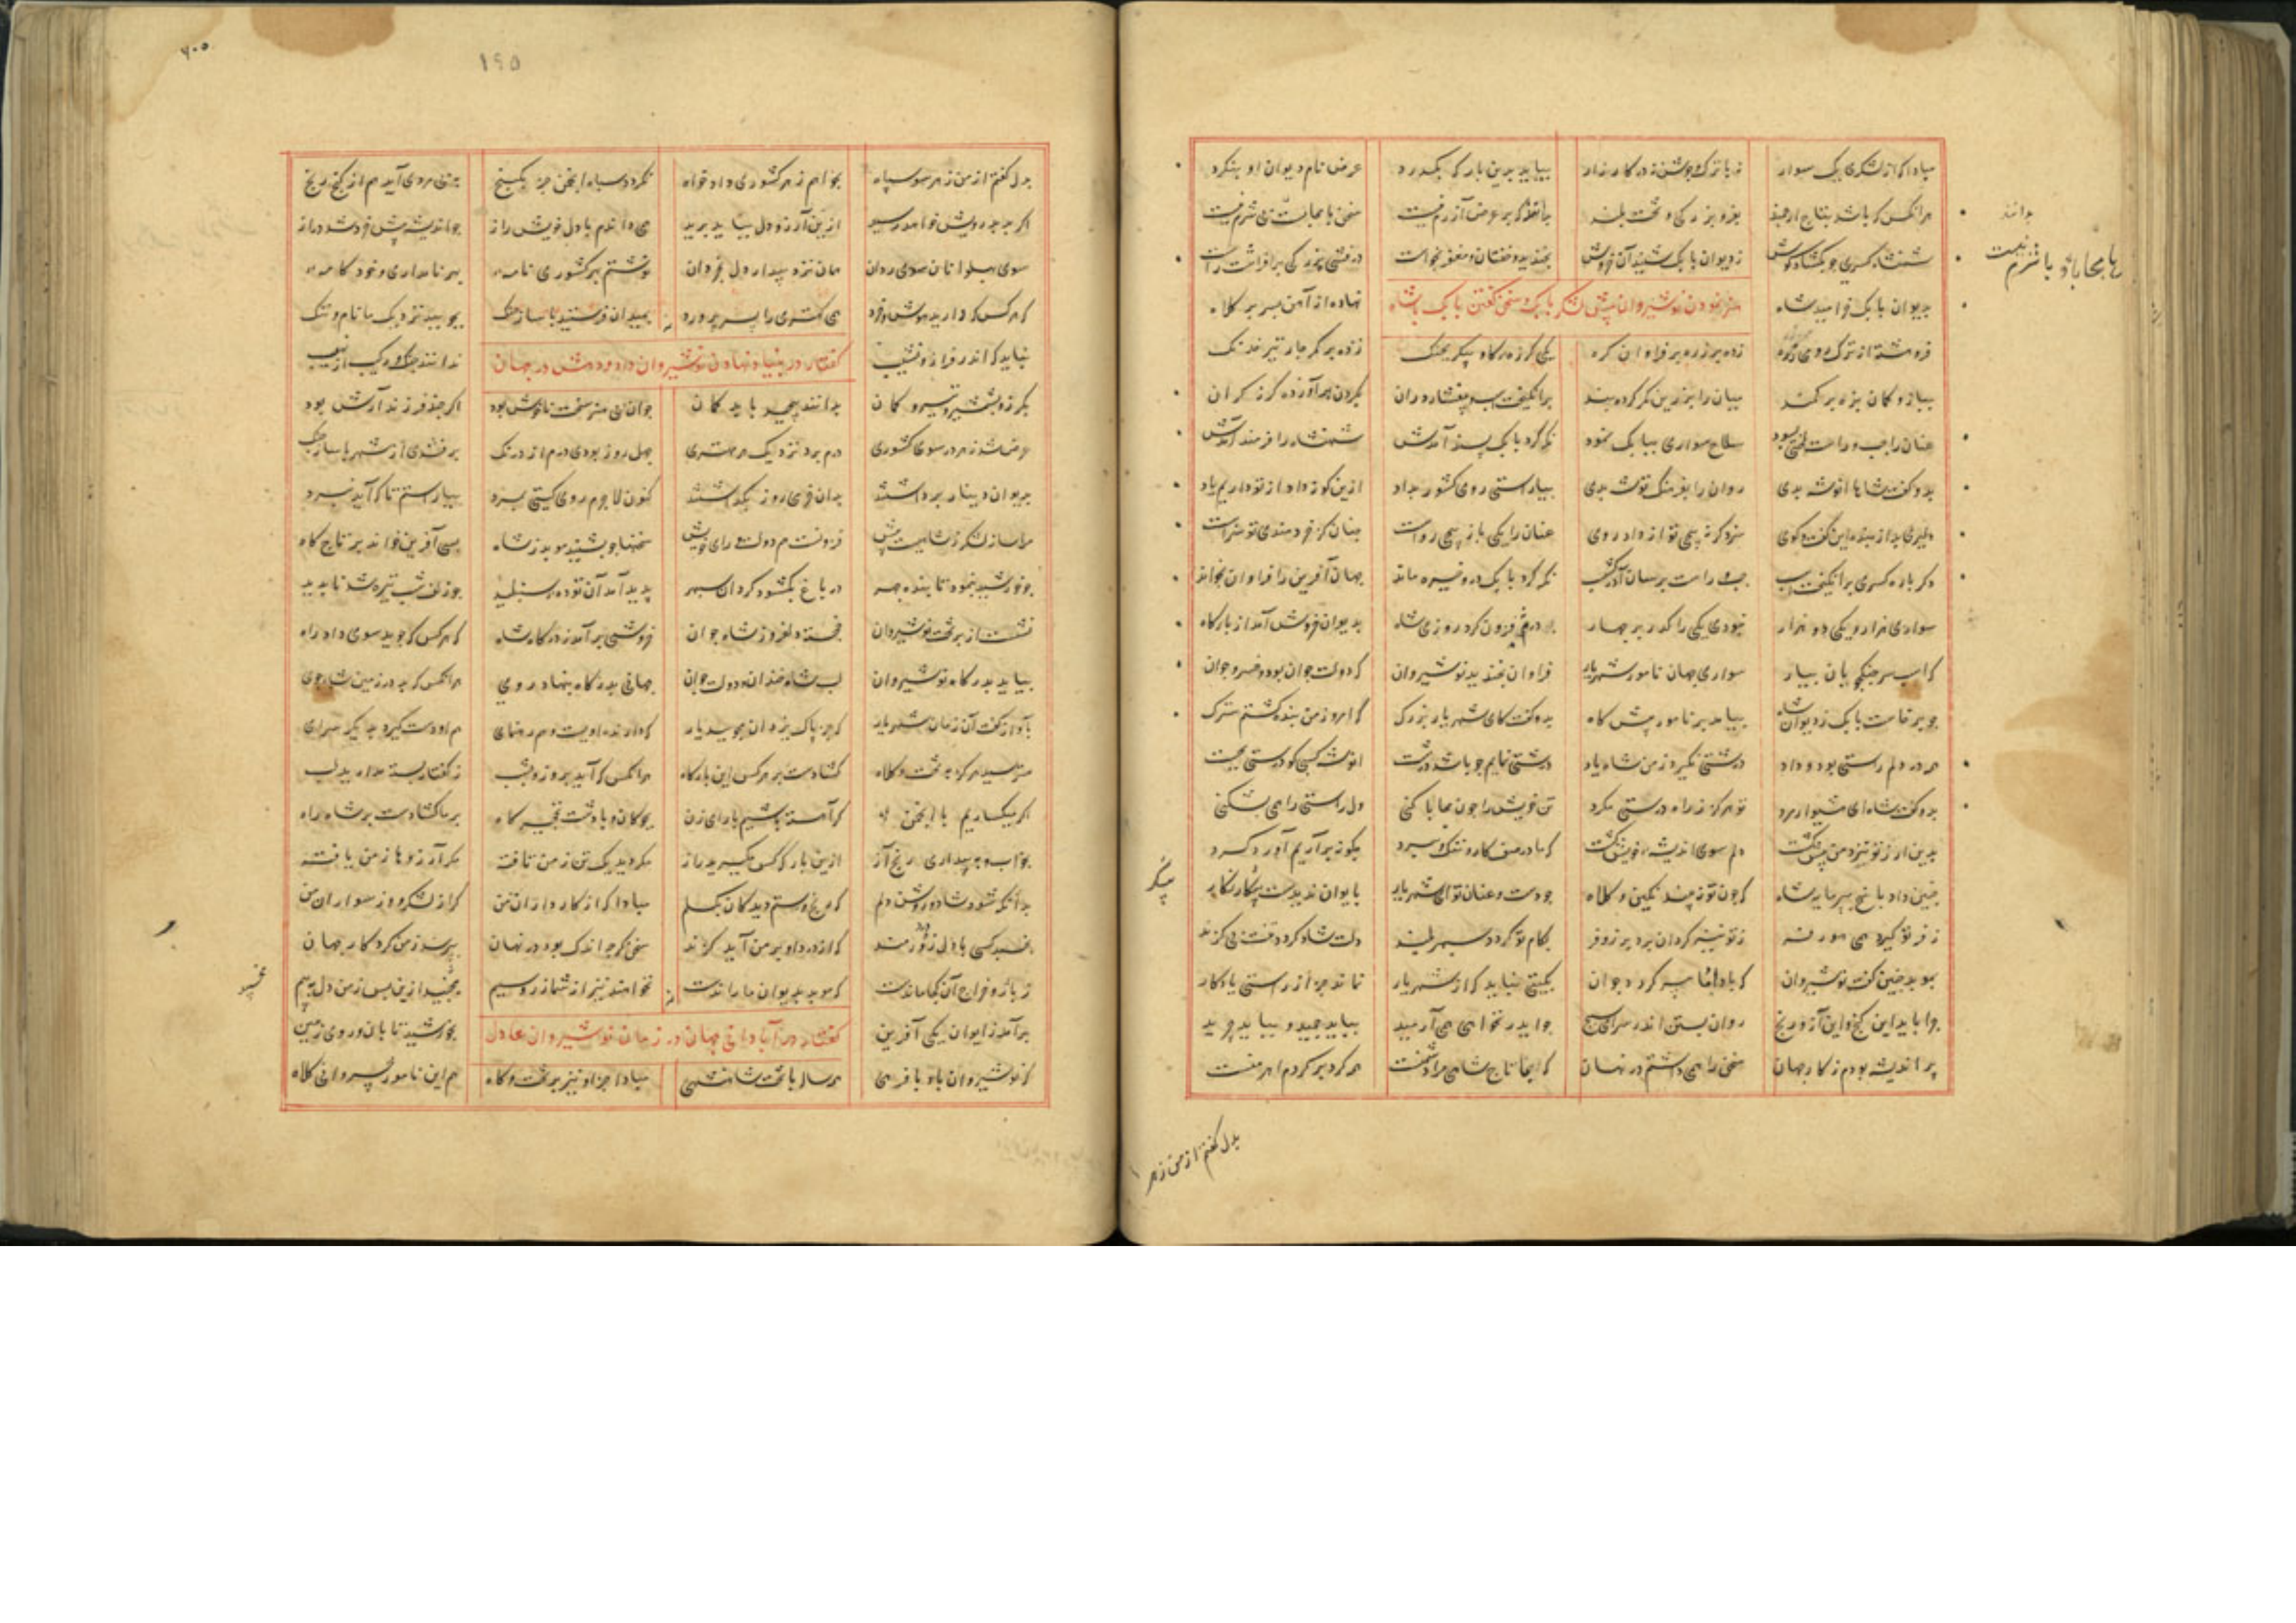 مبادا که از لشکری یک سوار نه با ترک و جوشن نه در کارزار
بیاید برین بارگه بگذرد عرض نام دیوان او بنگرد
هر آنکس که باشد بتاج ارجمند بفر و بزرگی و تخت بلند
بداند که بر عرض آزرم نیست سخن با محاباست زی شرم نیست
شهنشاه کسری چو بگشاد گوش ز دیوان بابک شنید آن خروش
بخندید و خفتان و مغفر بخواست درفش بزرگی برافراشت راست
بدیوان بابک خرامید شاه نهاده از آهن بسر بر کلاه
هنر نمودن نوشیروان پیش لشکر بابک و سخن گفتن بابک با شاه
فروهشته از ترک رومی زره زده بر زره بر فراوان گره
یکی گرزه گاو پیکر بچنگ زده بر کمرگاه تیر خدنگ
ببازو کمان و بزه بر کمند میان را بزرین کمر کرده بند
برانگیخت اسپ و بیفشارد ران بگردن برآورده گرز گران
عنان را چپ و راست لختی بسود سلاح سواری ببابک نمود
نگه کرد بابک پسند آمدش شهنشاه را فرمند آمدش
بدو گفت شاها انوشه بدی روان را بفرهنگ توشه بدی
بیاراستی روی کشور بداد ازین گونه داد از تو داریم یاد
دلیری بد از بنده این گفت و گوی سزد گر نپیچی تو از داد روی
عنان را یکی باز پیچی براست چنان کز خردمندی تو سزاست
دگر باره کسری برانگیخت اسپ چپ و راست برسان آذرگشسپ
نگه کرد بابک درو خیره ماند جهان آفرین را فراوان بخواند
سواری هزار و یکی دو هزار نبودی یکی را گذر بر چهار
درم فزون کرد روزی شاه بدیوان خروش آمد از بارگاه
که اسب سر جنگجویان بیار سواری جهان نامور شهریار
فراوان بخندید نوشیروان که دولت جوان بود و خسرو جوان
چو برخاست بابک ز دیوان شاه بیامد بر نامور پیشگاه
بدو گفت کای شهریار بزرگ گر امروز من بنده گشتم سترگ
همه در دلم راستی بود و داد درشتی نگیرد ز من شاه یاد
درشتی نمایم چو باشد درست انوشه کسی کو درستی بجست
بدو گفت شاه ای هشیوار مرد تو هرگز ز راه درستی مگرد
تن خویش را چون محابا کنی دل راستی را همی بشکنی
بدین ارز تو نزد من بیش گشت دلم سوی اندیشه خویش گشت
که ما در صف کار و ننگ و نبرد چگونه برآریم آورد گرد
چنین داد پاسخ بپرمایه شاه که چون تو نبیند نگین و کلاه
چو دست و عنان تو ای شهریار بایوان ندیدست پیکر نگار
بکام تو گردد سپهر بلند دلت شاد گردد تنت بی گزند
بموبد چنین گفت نوشیروان که با داد ما پیر گردد جوان
بگیتی نباید که از شهریار بماند جز از راستی یادگار
چرا باید این گنج و این آز و رنج روان بستن اندر سرای سپنج
چو ایدر نخواهی همی آرمید بباید چمید و بباید چرید
پر اندیشه بودم ز کار جهان سخن را همی داشتم در نهان
که ایما تاج شاهی مرا دشمنست همه گرد بر گردم اهرمنست
بدل گفتم از من ز هر
بدل گفتم ار من ز هر سو سپاه بخواهم ز هر کشوری دادخواه
نگردد سپاه انجمن جز بگنج بی مردمی آید هم از گنج رنج
اگر بد بدرویش خواهد رسید ازین آرزو دل بباید برید
همی راندم با دل خویش راز چو اندیشه پیش خرد شد دراز
سوی پهلوانان سوی ردان همان نزد بیداردل بخردان
نوشتم بهر کشوری نامه بهر نامداری و خودکامه
که هر کس که دارید هوش و خرد همی کهتری را پسر پرورد
بمیدان فرستید با ساز جنگ بجویند نزدیک ما نام و ننگ
نباید که اندر فراز و نشیب ندانند چنگ و رکیب از نهیب
گفتار در بنیاد نهادن نوشیروان داد و دهش در جهان
بگرز و بشمشیر و تیر و کمان بدانند پیچید با بدگمان
جوان بی هنر سخت ناخوش بود اگر چند فرزند آرش بود
عرض شد ز هر در سوی کشوری درم برد نزدیک هر مهتری
چهل روز بودی درم از درنگ برفتندی از شهر با ساز جنگ
بدیوان دینار برداشتند بدان خرمی روز بگذاشتند
کنون لاجرم روی گیتی بمرد بیاراستم تا که آید نبرد
مرا ساز لشکر ز شاهیست بیش فزونست هم دولت و رای خویش
سخنها چو بشنید موبد ز شاه بسی آفرین خواند بر تاج و گاه
چو خورشید بنمود تابنده چهر در باغ بگشود گردان سپهر
پدید آمد آن توده شنبلید چو زلف شب تیره شد ناپدید
نشست از بر تخت نوشیروان خجسته دلفروز شاه جوان
خروشی برآمد ز درگاه شاه که هر کس که جوید سوی داد راه
بیاید بدرگاه نوشیروان لب شاه خندان و دولت جوان
جهانی بدرگاه بنهاد روی هر آنکس که بد در زمین شاه جوی
بآواز گفت آن زمان شهریار که جز پاک یزدان مجویید یار
که دارنده اویست و هم رهنمای هم او دست گیرد بدیگر سرای
مترسید هرگز ز تخت و کلاه گشادست بر هر کس این بارگاه
هر آنکس که آید بروز و بشب ز گفتار بسته مدارید لب
اگر میگساریم با انجمن گر آهسته باشیم با رای زن
بچوگان و با دشت نخجیرگاه بر ما گشادست بر شاه راه
بخواب و ببیداری رنج آز ازین بارگه کس مگیرید باز
مگردید یک تن ز من تافته مگر آرزوها ز من یافته
بدانگه شود شاد و روشن دلم که رنج ستم دیدگان بگسلم
مبادا که از کارداران من گر از لشکر و وز سواران من
نخسبد کسی با دل دردمند که از درد او بر من آید گزند
سخن گرچه اندک بود در نهان بپرسد ز من کردگار جهان
ز باژ و خراج آن کجا ماندست که موبد بدیوان ما راندست
نخواهند نیز از شما زر و سیم مخسبید ازین پس ز من دل ببیم
برآمد ز ایوان یکی آفرین بخورشید تابان و روی زمین
گفتار در آبادانی جهان در زمان نوشیروان عادل
که نوشیروان باد با فرهی همه ساله با تخت شاهنشهی
مبادا جز او نیز بر تخت و گاه هم این نامور خسروانی کلاه